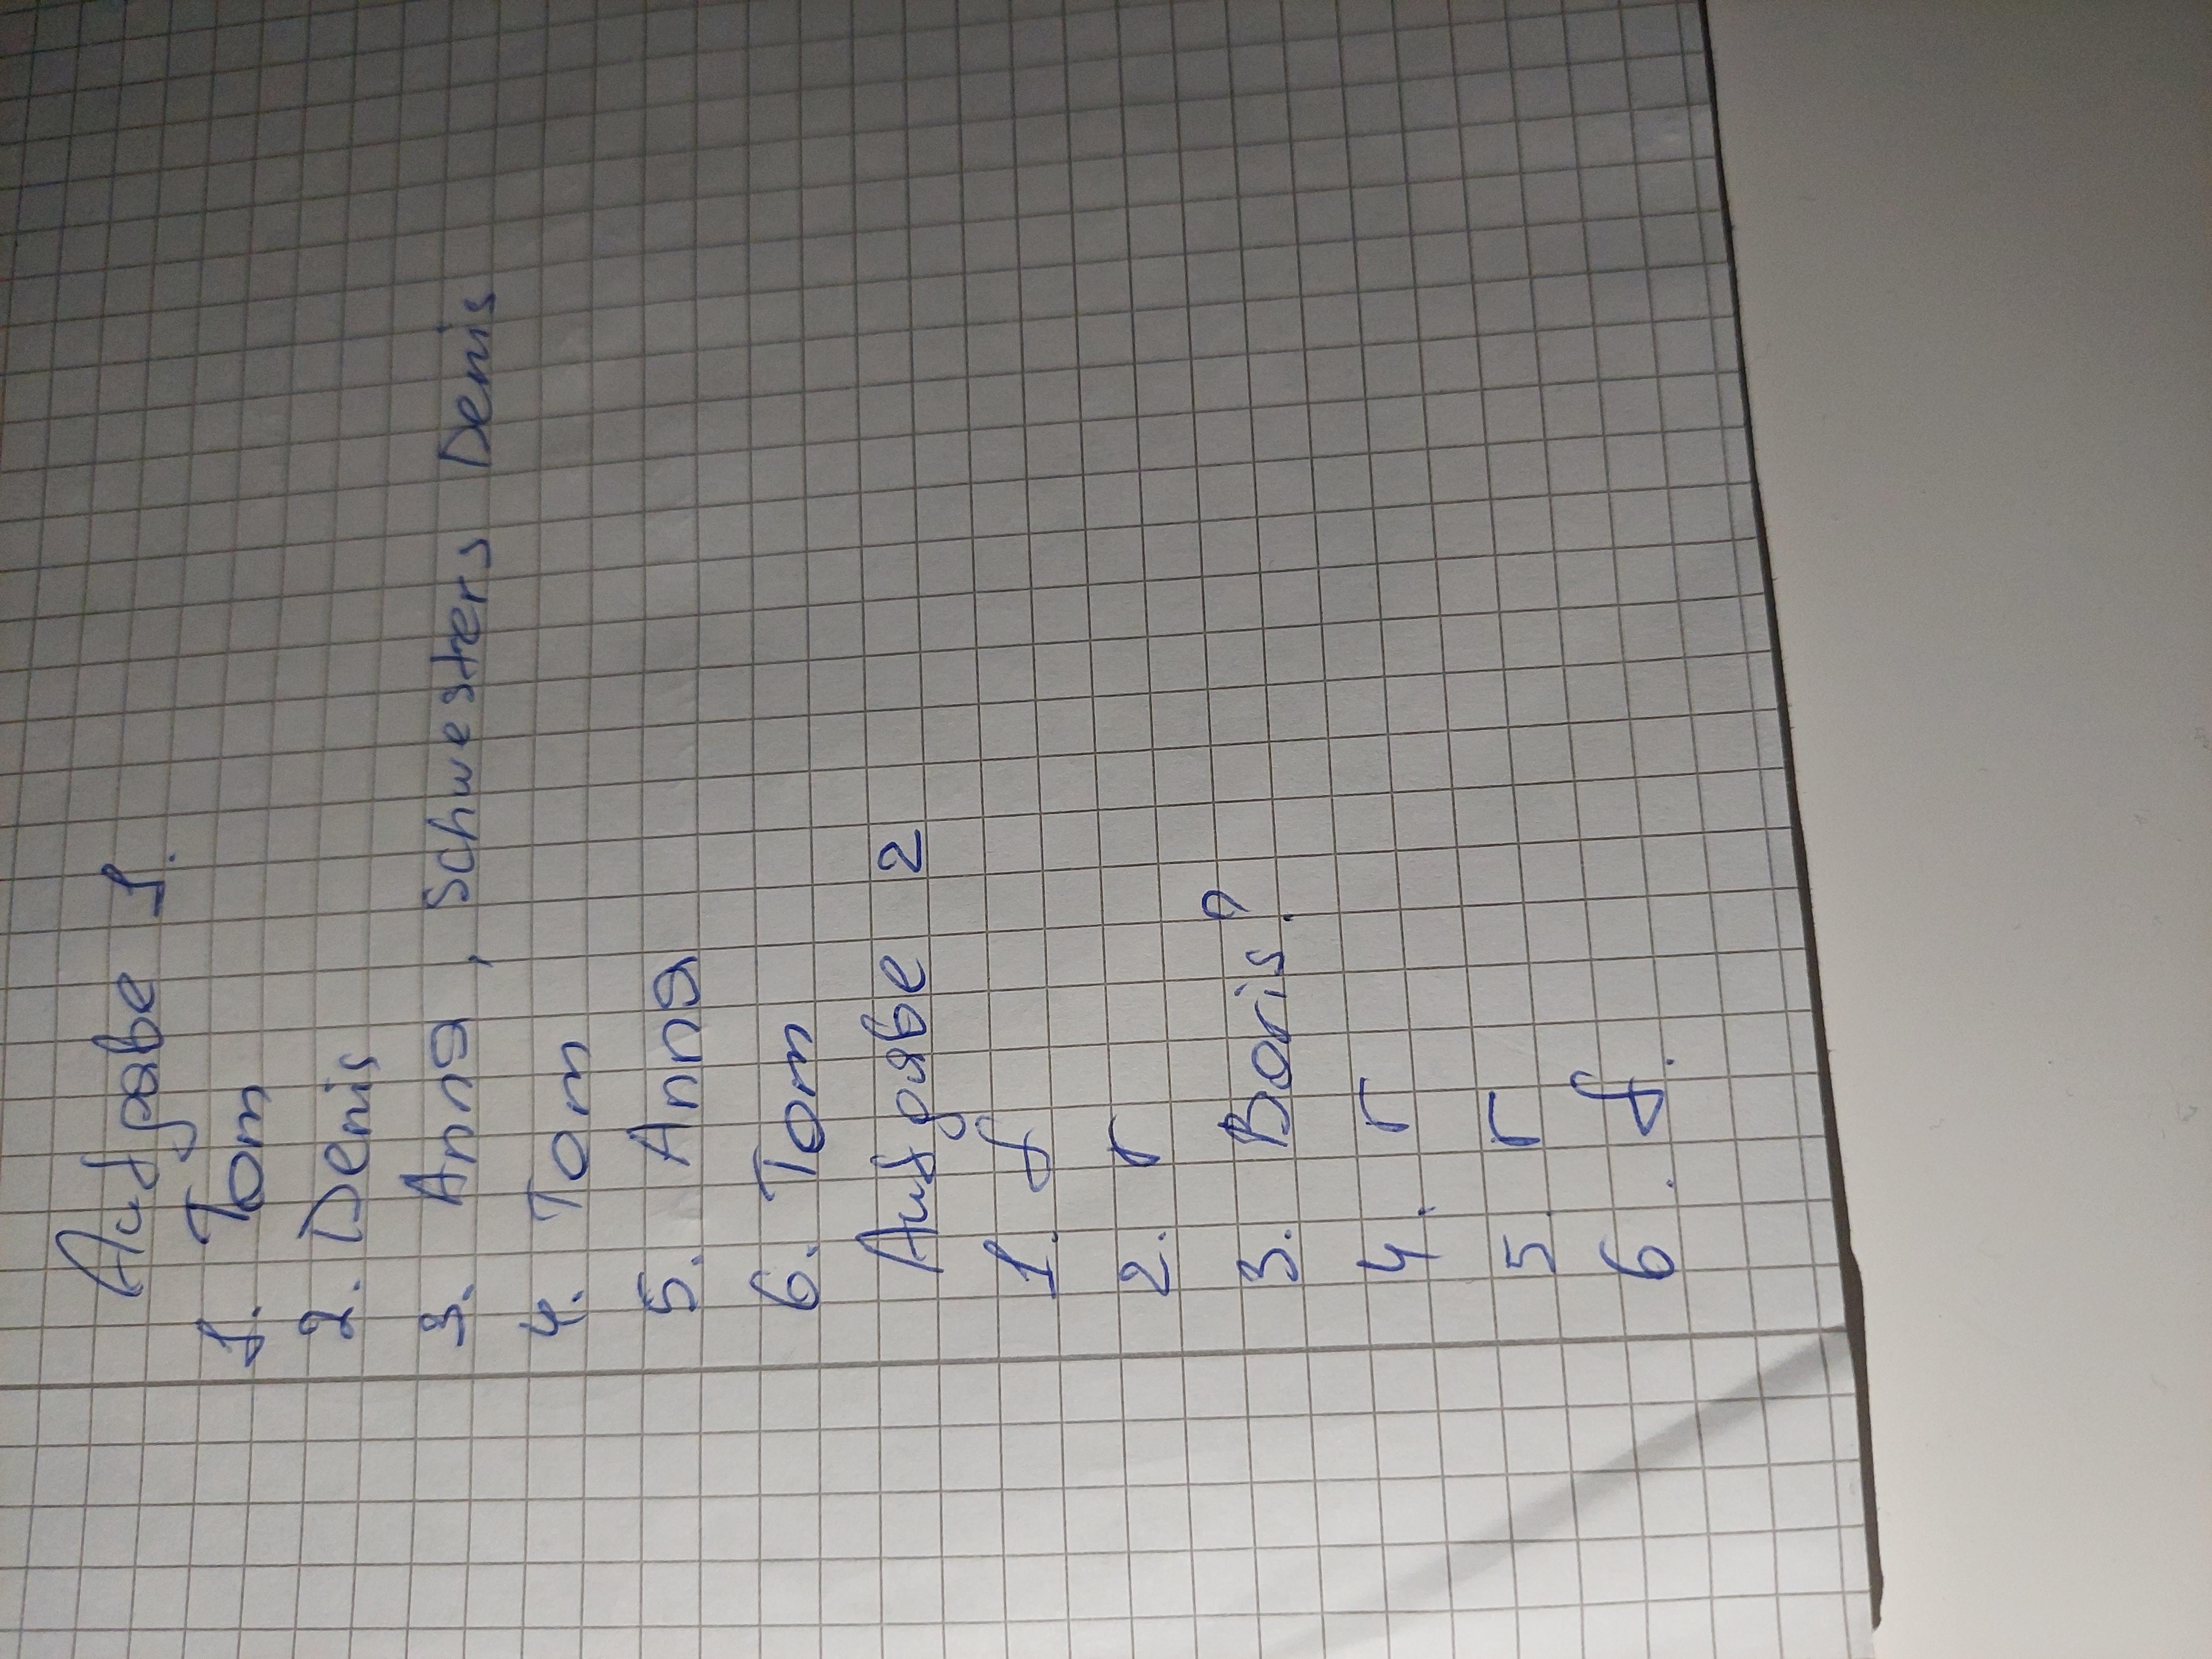 Aufgabe 1.
1. Tom
2. Denis
3. Anna, Schwesters Denis
4. Tom
5. Anna
6. Tom
Aufgabe 2
1. f
2. r
3. Boris?
4. r
5. r
6. f.